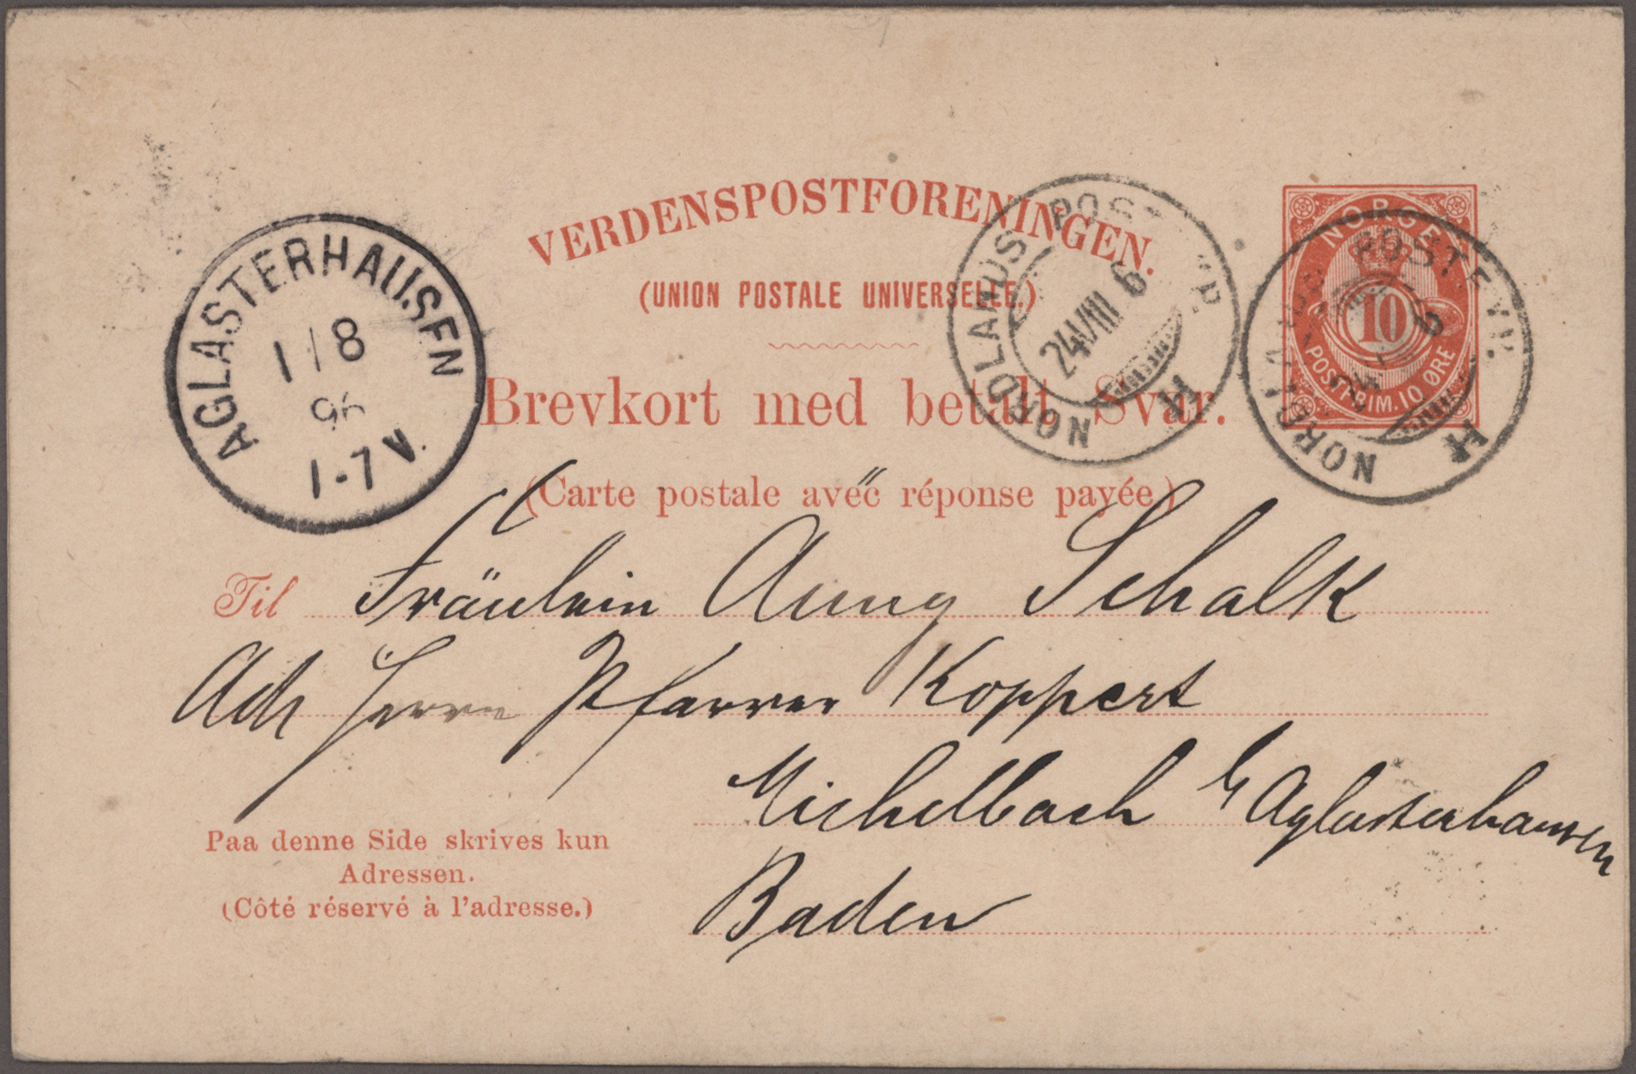 VERDENSPOSTFORENINGEN.
(UNION POSTALE UNIVERSELLE.)
Brevkort med betalt Svar.
(Carte postale avec réponse payée.)
NORGE
10
POSTFRIM. 10 ØRE
NORDLANDS POSTEXP. H
24 VIII 6
NORDLANDS POSTEXP. H
AGLASTERHAUSEN
1 8
96
1-7 V.
Til Fräulein Anny Schalk
Adr Herrn Pfarrer Koppert
Michelbach b/ Aglasterhausen
Baden
Paa denne Side skrives kun
Adressen.
(Côté réservé à l'adresse.)